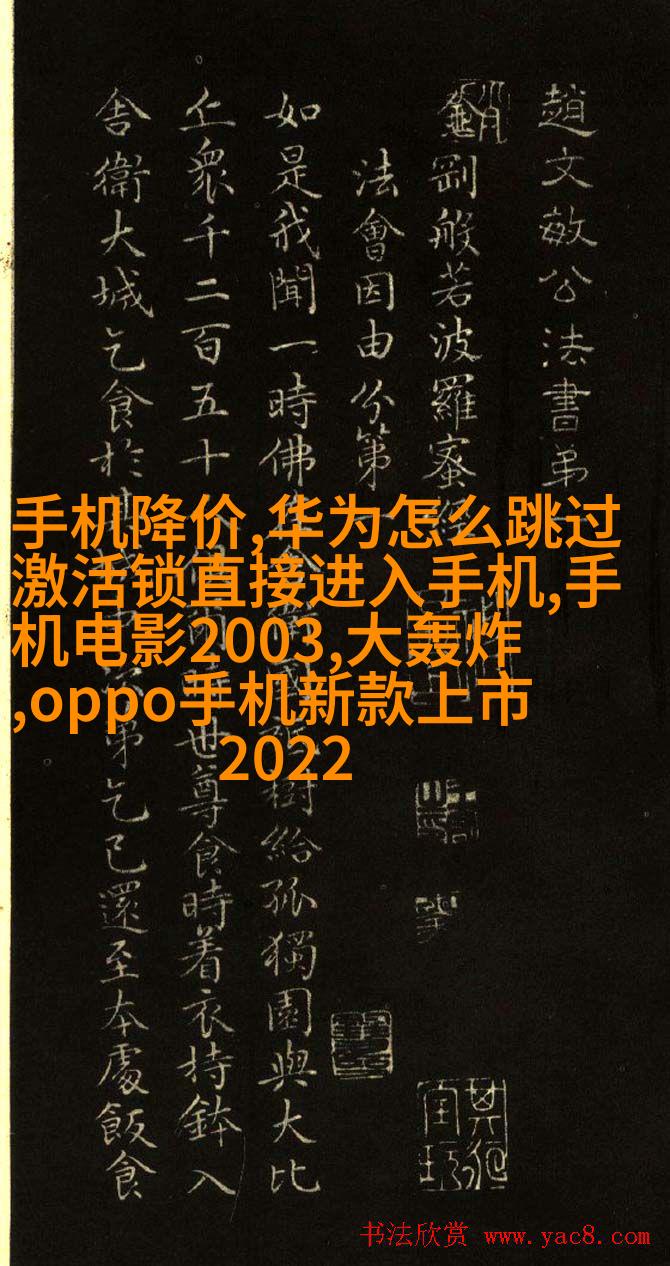 趙文敏公法書弟
金剛般若波羅蜜經
法會因由分第
如是我聞一時佛樹給孤獨園與大比
丘眾千二百五十世尊食時着衣持鉢入
舍衛大城乞食於其第乞已還至本處飯食
手机降价,华为怎么跳过
激活锁直接进入手机,手
机电影2003,大轰炸
,oppo手机新款上市
2022
书法欣赏 www.yac8.com